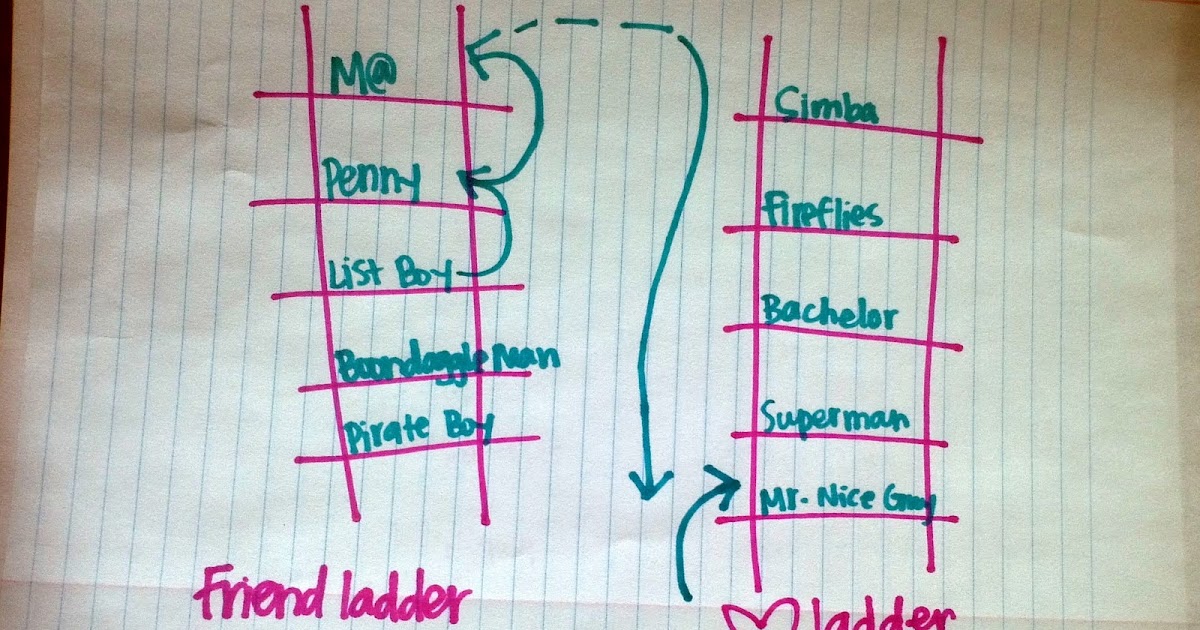 M@
Penny
List Boy
Boondoggle Man
Pirate Boy
Friend ladder
Simba
Fireflies
Bachelor
Superman
Mr. Nice Guy
ladder